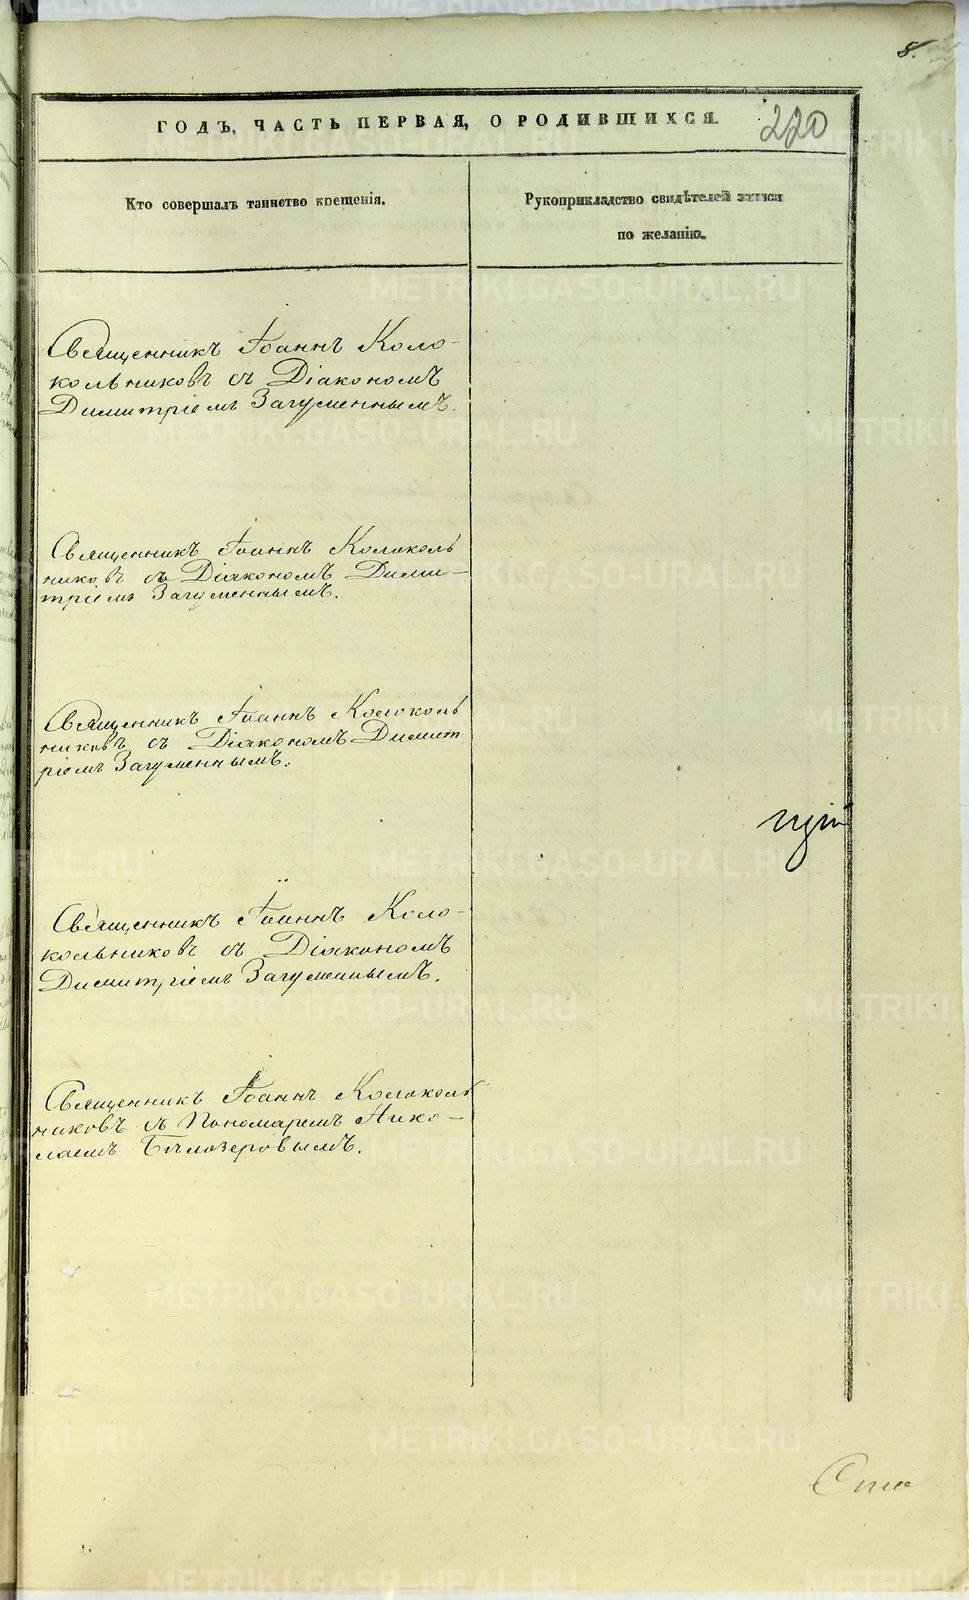 8.
ГОДЪ, ЧАСТЬ ПЕРВАЯ, О РОДИВШИХСЯ.
220
Кто совершалъ таинство крещенія.
Рукоприкладство свидѣтелей записи
по желанію.
Священникъ Іоаннъ Коло-
кольниковъ съ Діакономъ
Димитріемъ Загуменнымъ.
Священникъ Іоаннъ Колоколь
никовъ съ Діакономъ Дими-
тріемъ Загуменнымъ.
Священникъ Іоаннъ Колоколь
никовъ съ Діакономъ Димит
ріемъ Загуменнымъ.
Священникъ Іоаннъ Коло-
кольниковъ съ Діакономъ
Димитріемъ Загуменнымъ.
Священникъ Іоаннъ Колоколь
никовъ съ Пономаремъ Нико-
лаемъ Бѣлозеровымъ.
METRIKI.GASO-URAL.RU